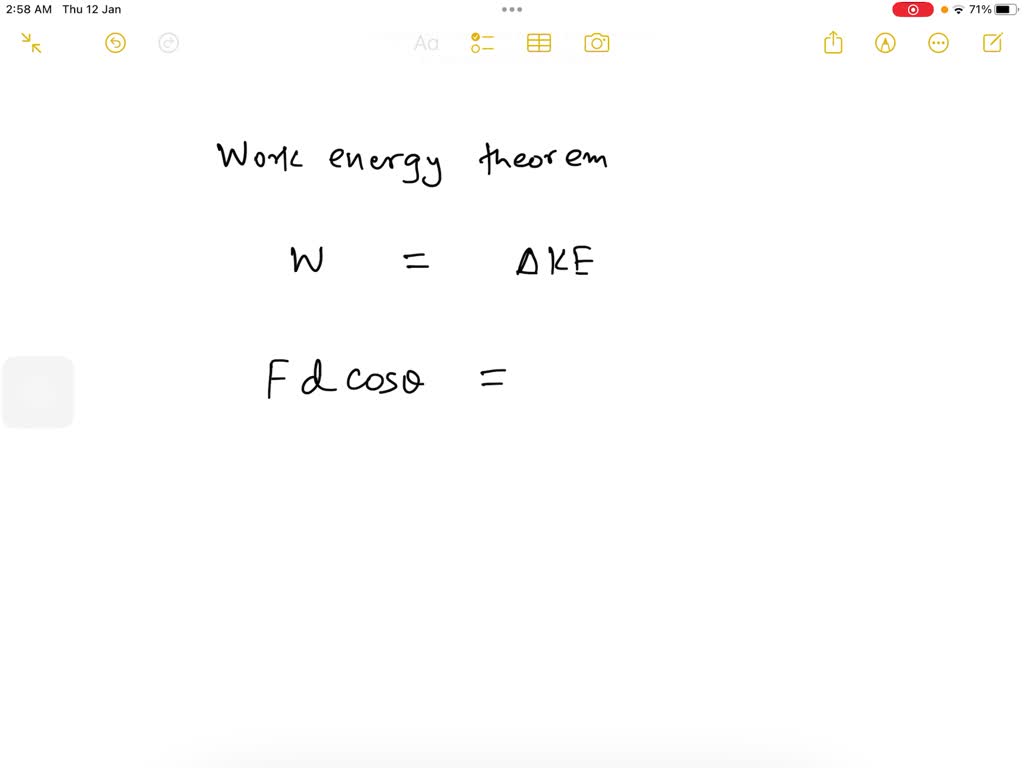 2:58 AM Thu 12 Jan 71%
Aa
Work energy theorem
W = ΔKE
F d cosθ =